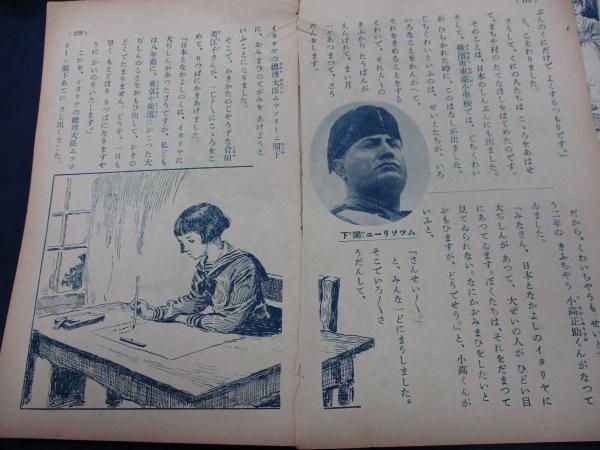 ぶんのくにだけで、よくするつもりです。』
と、ことわりました。
さうして、くにの人たちは こゝろをあはせ
て、まち や村のたてなほしをはじめたのです。
そのことは、日本のしんぶんにも出ました。
そして、横濱市東小學校では、じちくわい
がひらかれた時に、このはなしが出ました。
じちくわいといふのは、せいとたちが、いろ
いろなことをかんがへて、
それをきめることをする
くわいで、それ〴〵の
きふから たうばんが
えらばれて、まい月
一どあつまつて、さう
だんをします。
ムツソリーニ閣下
だから、くわいちやうも せいと
う二年の きふちやう 小高正助くんがなつて
ゐました。
『みなさん、日本となかよしのイタリヤに
大ぢしんが あつて、大ぜいの人が ひどい目
にあつてゐます。ぼくたちは、それをだまつて
見てゐられない。なにかおみまひをしたいと
おもひますが、どうでせう。』と、小高くんが
いふと、
『さんせい〳〵。』
と、みんな一どにまうしました。
そこでいろ〳〵さ
うだんして、
イタリヤの總理大臣ムツソリーニ閣下
に、おみまひのてがみを あげようと
いふことになりました。
そこで、かきかたのじやうずな倉田
美江子さんが、一じ〳〵にこゝろをこ
めて、りつぱにかきあげました。
『日本となかよしのくに、イタリヤに
大ぢしんがあつたさうですが、私ども
は八年前に東京や横濱におこつた大
ぢしんのことをおもひ出して、おきの
どくでたまりません。どうぞ、一日も
早く、もとどほり りつぱになりますや
うに おいのりいたします。』
これを、イタリヤの總理大臣ムツソ
リーニ閣下あてに さし出しました。